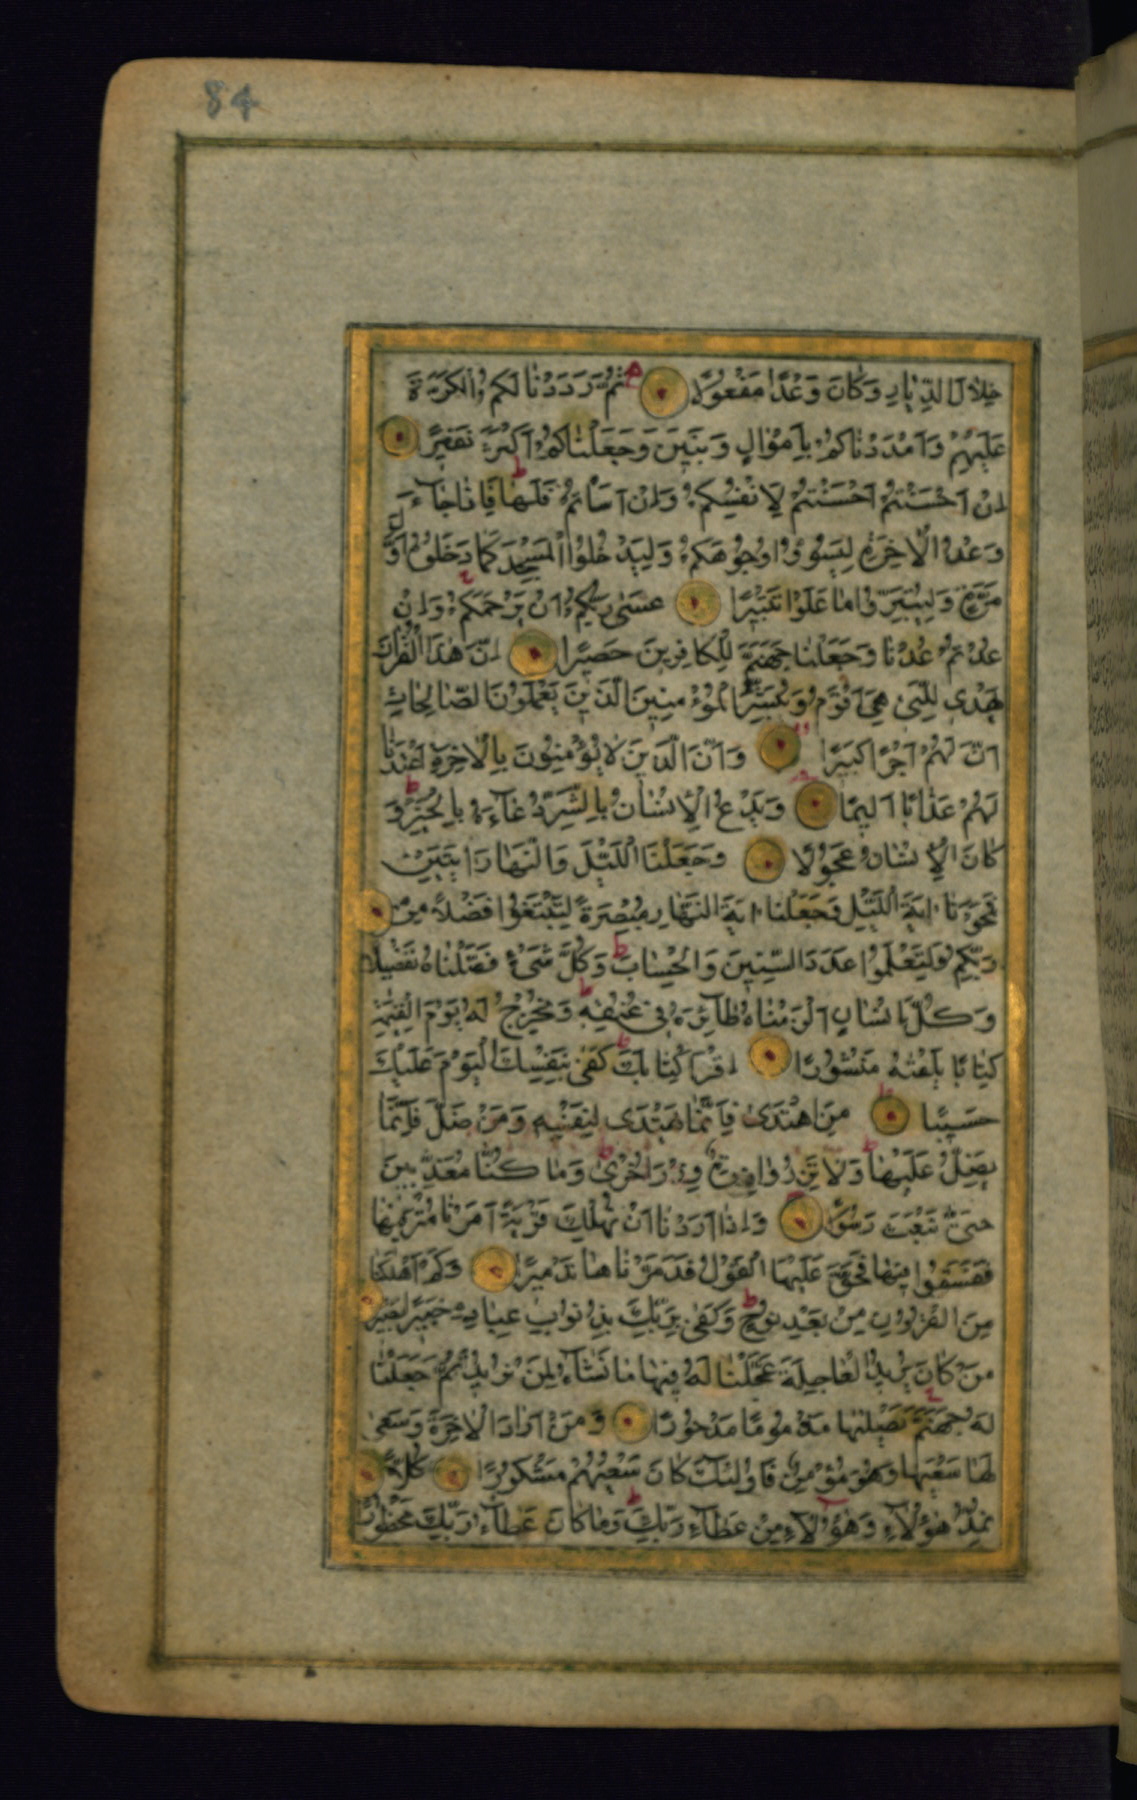 84
خِلَالَ الدِّيَارِ وَكَانَ وَعْدًا مَفْعُولًا ثُمَّ رَدَدْنَا لَكُمُ الْكَرَّةَ
عَلَيْهِمْ وَأَمْدَدْنَاكُمْ بِأَمْوَالٍ وَبَنِينَ وَجَعَلْنَاكُمْ أَكْثَرَ نَفِيرًا
إِنْ أَحْسَنْتُمْ أَحْسَنْتُمْ لِأَنْفُسِكُمْ وَإِنْ أَسَأْتُمْ فَلَهَا فَإِذَا جَاءَ
وَعْدُ الْآخِرَةِ لِيَسُوؤُا وُجُوهَكُمْ وَلِيَدْخُلُوا الْمَسْجِدَ كَمَا دَخَلُوهُ أَوَّلَ
مَرَّةٍ وَلِيُتَبِّرُوا مَا عَلَوْا تَتْبِيرًا عَسَى رَبُّكُمْ أَنْ يَرْحَمَكُمْ وَإِنْ
عُدْتُمْ عُدْنَا وَجَعَلْنَا جَهَنَّمَ لِلْكَافِرِينَ حَصِيرًا إِنَّ هَذَا الْقُرْآنَ
يَهْدِي لِلَّتِي هِيَ أَقْوَمُ وَيُبَشِّرُ الْمُؤْمِنِينَ الَّذِينَ يَعْمَلُونَ الصَّالِحَاتِ
أَنَّ لَهُمْ أَجْرًا كَبِيرًا وَأَنَّ الَّذِينَ لَا يُؤْمِنُونَ بِالْآخِرَةِ أَعْتَدْنَا
لَهُمْ عَذَابًا أَلِيمًا وَيَدْعُ الْإِنْسَانُ بِالشَّرِّ دُعَاءَهُ بِالْخَيْرِ وَ
كَانَ الْإِنْسَانُ عَجُولًا وَجَعَلْنَا اللَّيْلَ وَالنَّهَارَ آيَتَيْنِ
فَمَحَوْنَا آيَةَ اللَّيْلِ وَجَعَلْنَا آيَةَ النَّهَارِ مُبْصِرَةً لِتَبْتَغُوا فَضْلًا مِنْ
رَبِّكُمْ وَلِتَعْلَمُوا عَدَدَ السِّنِينَ وَالْحِسَابَ وَكُلَّ شَيْءٍ فَصَّلْنَاهُ تَفْصِيلًا
وَكُلَّ إِنْسَانٍ أَلْزَمْنَاهُ طَائِرَهُ فِي عُنُقِهِ وَنُخْرِجُ لَهُ يَوْمَ الْقِيمَةِ
كِتَابًا يَلْقَاهُ مَنْشُورًا اقْرَأْ كِتَابَكَ كَفَى بِنَفْسِكَ الْيَوْمَ عَلَيْكَ
حَسِيبًا مَنِ اهْتَدَى فَإِنَّمَا يَهْتَدِي لِنَفْسِهِ وَمَنْ ضَلَّ فَإِنَّمَا
يَضِلُّ عَلَيْهَا وَلَا تَزِرُ وَازِرَةٌ وِزْرَ أُخْرَى وَمَا كُنَّا مُعَذِّبِينَ
حَتَّى نَبْعَثَ رَسُولًا وَإِذَا أَرَدْنَا أَنْ نُهْلِكَ قَرْيَةً أَمَرْنَا مُتْرَفِيهَا
فَفَسَقُوا فِيهَا فَحَقَّ عَلَيْهَا الْقَوْلُ فَدَمَّرْنَاهَا تَدْمِيرًا وَكَمْ أَهْلَكْنَا
مِنَ الْقُرُونِ مِنْ بَعْدِ نُوحٍ وَكَفَى بِرَبِّكَ بِذُنُوبِ عِبَادِهِ خَبِيرًا بَصِيرًا
مَنْ كَانَ يُرِيدُ الْعَاجِلَةَ عَجَّلْنَا لَهُ فِيهَا مَا نَشَاءُ لِمَنْ نُرِيدُ ثُمَّ جَعَلْنَا
لَهُ جَهَنَّمَ يَصْلَاهَا مَذْمُومًا مَدْحُورًا وَمَنْ أَرَادَ الْآخِرَةَ وَسَعَى
لَهَا سَعْيَهَا وَهُوَ مُؤْمِنٌ فَأُولَئِكَ كَانَ سَعْيُهُمْ مَشْكُورًا كُلًّا
نُمِدُّ هَؤُلَاءِ وَهَؤُلَاءِ مِنْ عَطَاءِ رَبِّكَ وَمَا كَانَ عَطَاءُ رَبِّكَ مَحْظُورًا